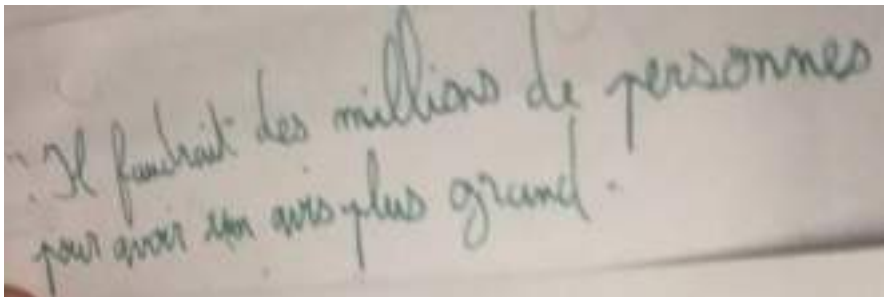 "Il faudrait des millions de personnes
pour avoir un avis plus grand.